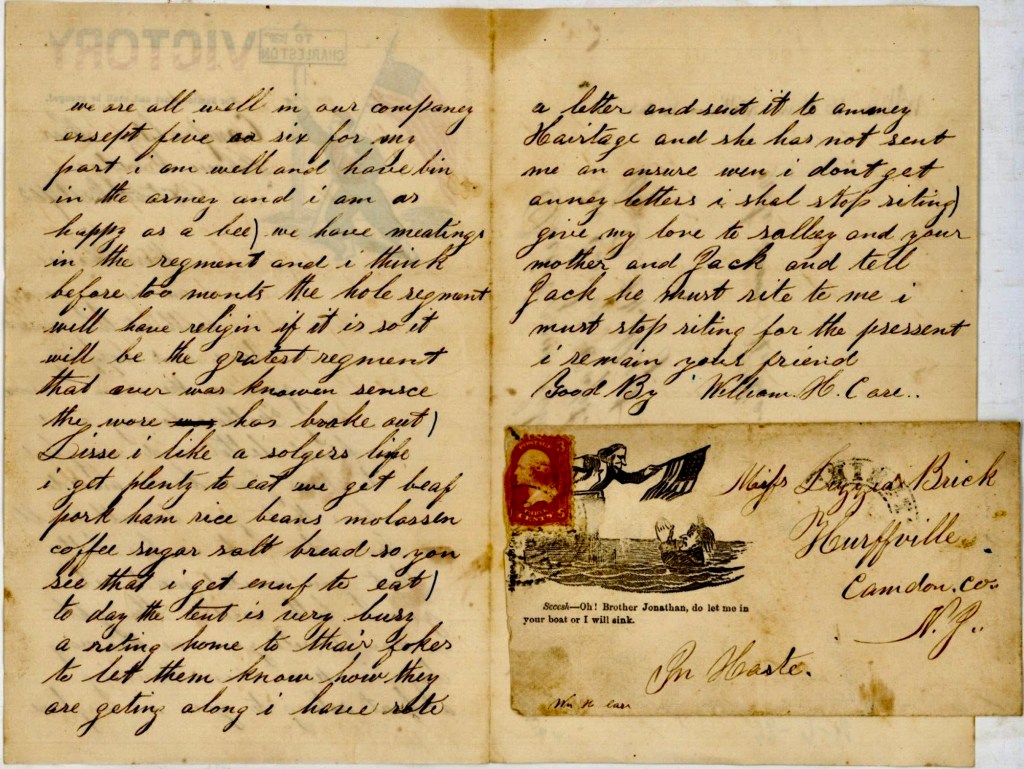 we are all well in our companey
exsept five or six for my
part i am well and have bin
in the armey and i am as
happy as a bee) we have meatings
in the regment and i think
before too monts the hole regment
will have religin if it is so it
will be the gratest regment
that aver was knowen sensce
the wore was has broke out)
Lisse i like a solgers life
i get plenty to eat we get beaf
pork ham rice beans molassen
coffee sugar salt bread so you
see that i get enuf to eat)
to day the tent is very busy
a riting home to thair fokes
to let them know how they
are geting along i have rote
a letter and sent it to anney
Hairtage and she has not sent
me an ansure wen i dont get
anney letters i shal stop riting)
give my love to salley and your
mother and Jack and tell
Jack he must rite to me i
must stop riting for the pressent
i remain your friend
Good By William. H. Care..
VICTORY
TO
CHARLESTON
POSTAGE
Secesh—Oh! Brother Jonathan, do let me in
your boat or I will sink.
Miss Lizzia Brick
Hurffville
Camdon. co.
N. J.
In Haste.
Wm H care